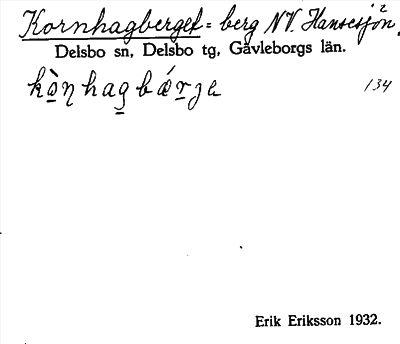 Kornhagberget = berg NV. Hansesjön.²
Delsbo sn, Delsbo tg, Gävleborgs län.
kò̠ŋhag̠bǽr̠je 134
Erik Eriksson 1932.